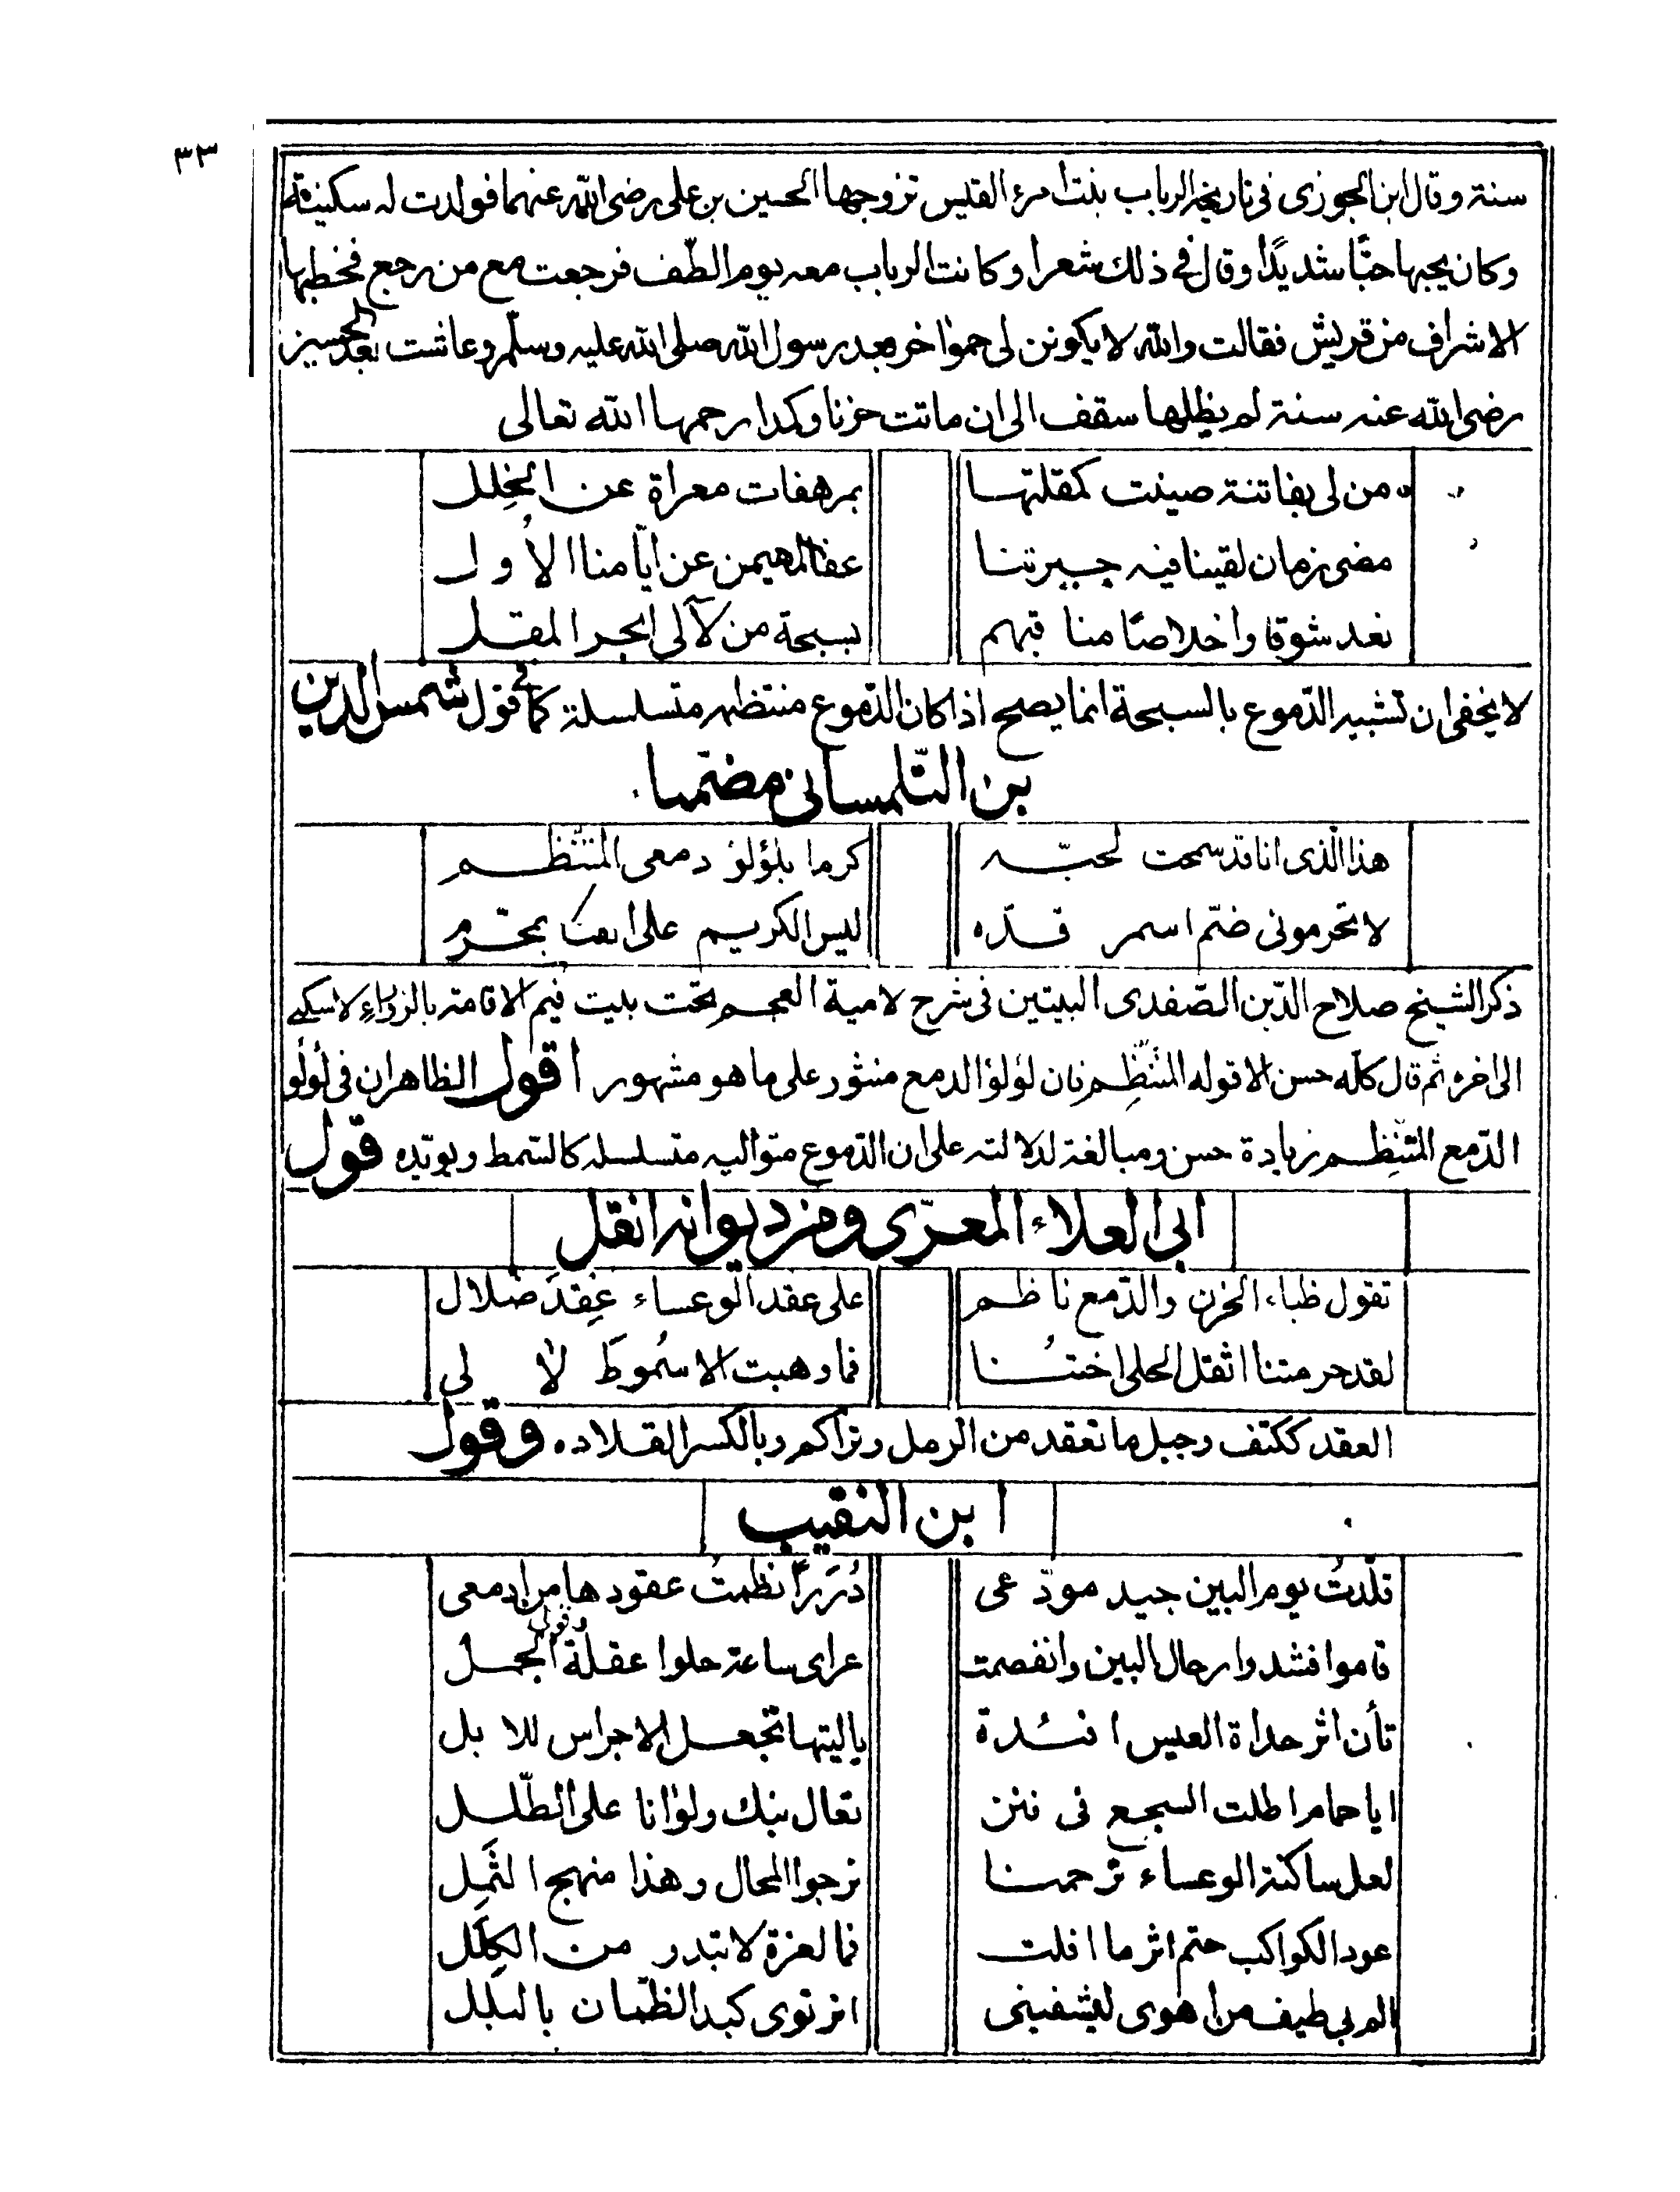 ٣٣
سنة وقال ابن الجوزى فى تاريخه الرباب بنت امرء القيس تزوجها الحسين بن على رضى الله عنهما فولدت له سكينة
وكان يحبها حبّا شديدًا وقال فى ذلك شعرا وكانت الرباب معه يوم الطّف فرجعت مع من رجع فخطبها
الاشراف من قريش فقالت والله لا يكونن لى حموا خر بعد رسول الله صلى الله عليه وسلّم وعاشت بعد الحسين
رضى الله عنه سنة لم يظلها سقف الى ان ماتت حزنا وكمدا رحمها الله تعالى
من لى بفاتنة صينت كمقلتها بمرهفات معراة عن الخِلل
مضى زمان لقينا فيه جيرتنا عفا المهيمن عن ايّامنا الأُول
نعد شوقا واخلاصًا منا قبهم بسبحة من لآلى ابحر المقل
لا يخفى ان تشبيه الدّموع بالسبحة انما يصح اذا كان الدّموع منتظمه متسلسلة كما فى قول شمس الدين
بن التّلمسانى مضمّنا
هذا الّذى انا قد سمحت لحبّه كرما بلؤلؤ دمعى المتنظّم
لا تحرمونى ضمّ اسمر قدّه ليس الكريم على القنا بمحرّم
ذكر الشيخ صلاح الدّين الصّفدى البيتين فى شرح لامية العجم تحت بيت فيم الاقامة بالزوراءِ لا سكنى
الى اخره ثم قال كلّه حسن الا قوله المتنظّم فان لؤلؤ الدمع منثور على ما هو مشهور اقول الظاهر ان فى لؤلؤ
الدّمع المتنظّم زيادة حسن ومبالغة لدلالته على ان الدّموع متواليه متسلسله كالسّمط ويؤيّده قول
ابى العلاء المعرّى ومن ديوانه انقل
تقول ظباء الحزن والدّمع ناظم على عقد الوعساء عِقدَ ضلال
لقد حرمتنا اثقل الحلى اختُنا فما وهبت الا سُموطَ لآلى
العقد ككتف وجبل ما تعقد من الرمل وتراكم وبالكسر القلاده وقول
ابن النقيب
قلّدتُ يوم البين جيد مودّعى دُرَرًا نظمتُ عقودها من ادمعى
وقولى
قاموا فشدوا رحال البين وانفصمت عراى ساعة حلوا عقلةُ الجمل
تأن اثر حداة العيس افئدة ياليتها تجعل الاجراس للابل
ايا حماما طلت السجع فى فنن تعال نبك ولو انا على الطّلل
لعل ساكنة الوعساء ترحمنا نرجوا المحال وهذا منهج الثَّمِل
عود الكواكب حتم اثر ما افلت فما لعزة لا تبدر من الكِلَل
الم بى طيف من اهوى ليشفينى ا نرتوى كبد الظّمان بالبلل